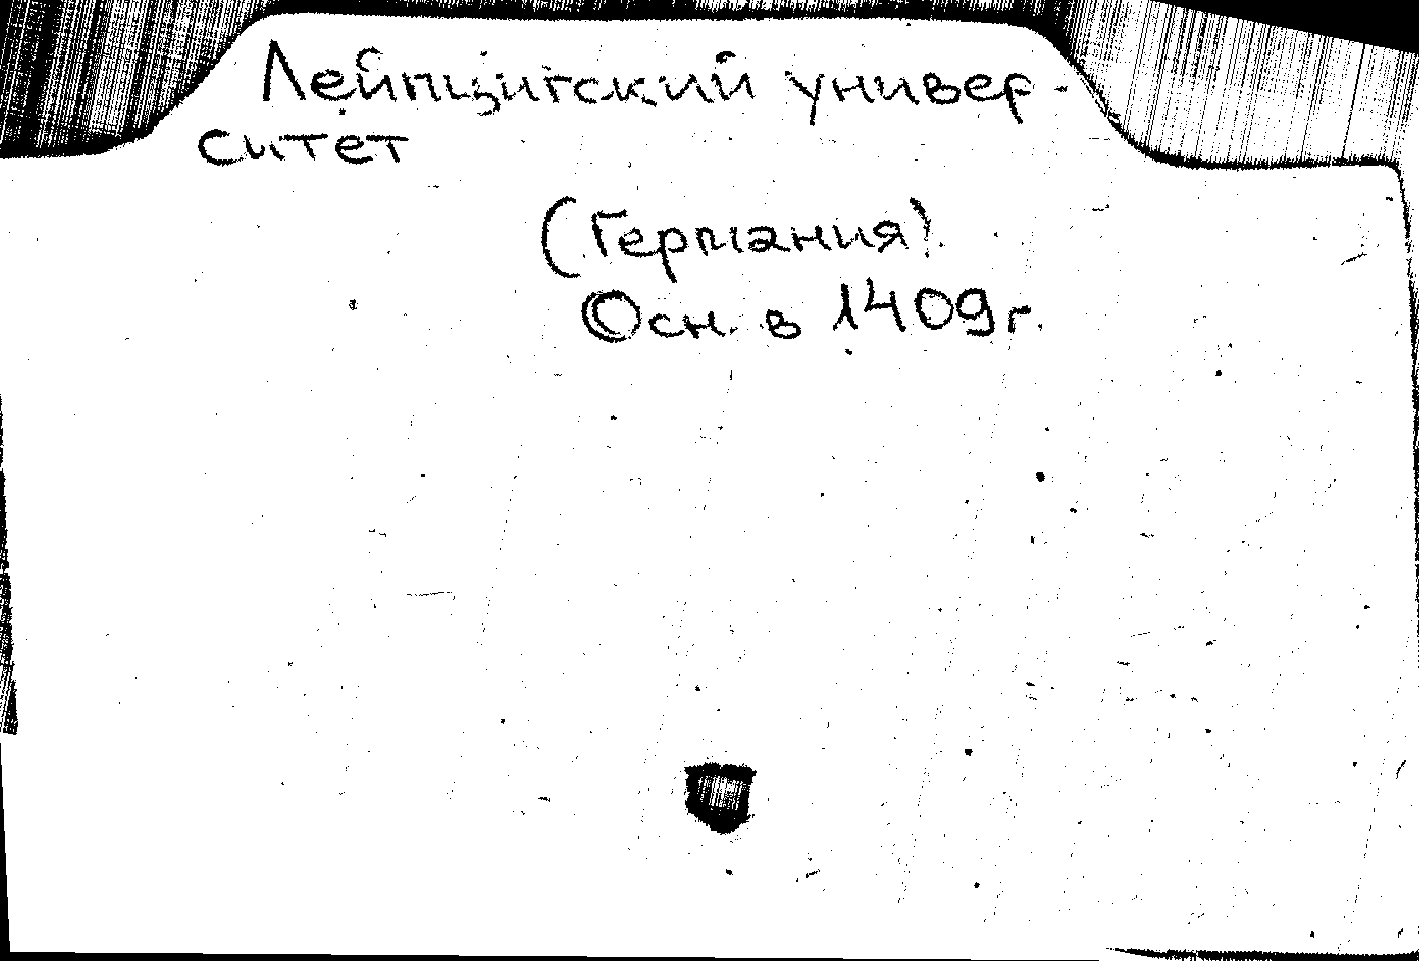 Лейпцигский универ-
ситет
(Германия).
Осн. в 1409 г.